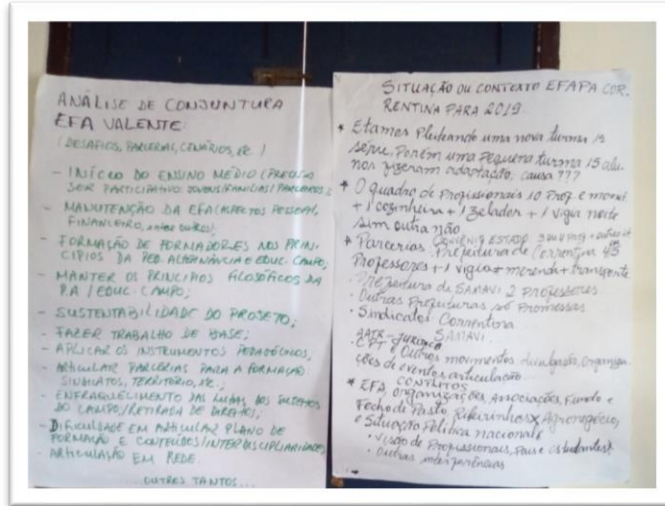 ANÁLISE DE CONJUNTURA
EFA VALENTE
(DESAFIOS, PARCERIAS, CENÁRIOS, ETC.)
- INÍCIO DO ENSINO MÉDIO (PRECISO
SER PARTICIPATIVO: JOVENS/FAMÍLIAS/PARCEIROS);
- MANUTENÇÃO DA EFA (ASPECTOS PESSOAL,
FINANCEIRO, entre outros);
- FORMAÇÃO DE FORMADORES NOS PRIN-
CÍPIOS DA PED. ALTERNÂNCIA E EDUC. CAMPO;
- MANTER OS PRINCÍPIOS FILOSÓFICOS DA
P.A / EDUC. CAMPO;
- SUSTENTABILIDADE DO PROJETO;
- FAZER TRABALHO DE BASE;
- APLICAR OS INSTRUMENTOS PEDAGÓGICOS;
- ARTICULAR PARCERIAS PARA A FORMAÇÃO:
SINDICATOS, TERRITÓRIO, ETC.;
- ENFRAQUECIMENTO DAS LUTAS DOS SUJEITOS
DO CAMPO/RETIRADA DE DIREITOS;
- DIFICULDADE EM ARTICULAR PLANO DE
FORMAÇÃO E CONTEÚDOS/INTERDISCIPLIARIDADE;
- ARTICULAÇÃO EM REDE.
...OUTROS TANTOS...
SITUAÇÃO OU CONTEXTO EFAPA COR-
RENTINA PARA 2019
* Etamos Pleiteando uma nova turma 1ª
série. Porém uma pequena turma 15 alu-
nos fizeram adaptação, causa ???
* O quadro de Profissionais 10 Prof. e monit
+ 1 cozinheira + 1 zelador + 1 vigia noite
sim outra não
* Parcerias CONVÊNIO ESTADO
Prefeitura de Correntina
Professores + 1 vigia + merenda + transporte
- Prefeitura de SAMAVI 2 Professores
- Outras Prefeituras só Promessas
- Sindicatos Correntina
SAMAVI
AATR - JURÍDICO
- CPT e Outros movimentos Organiza-
ções de eventos articulação...
CONFLITOS
* EFA, organizações, Associações, Fundo e
Fecho de Pasto, Ribeirinhos X Agronegócio,
e Situação Política nacional
- Visão de Profissionais, Pais e Estudantes?
- Outras interferências